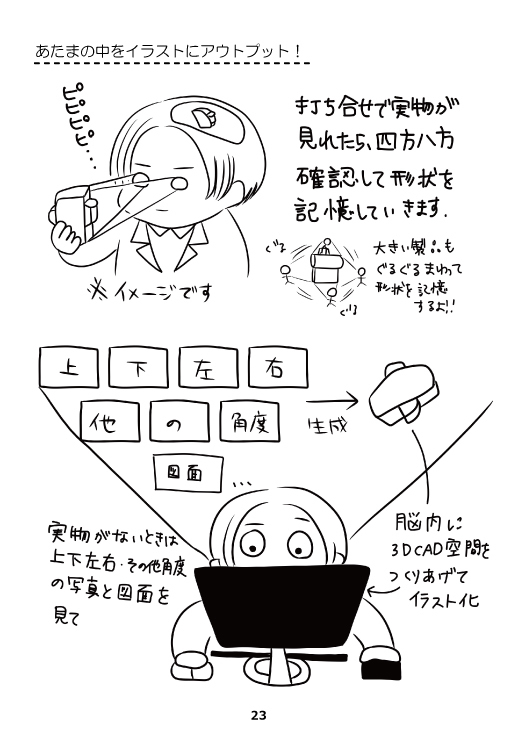 あたまの中をイラストにアウトプット！
ピピピピ…
打ち合せで実物が
見れたら、四方八方
確認して形状を
記憶していきます.
※イメージです
ぐる
大きい製品も
ぐるぐるまわって
形状を記憶
するよ!!
ぐる
上 下 左 右
他 の 角度
生成
図面 ...
実物がないときは
上下左右・その他角度
の写真と図面を
見て
脳内に
3DCAD空間を
つくりあげて
イラスト化
23